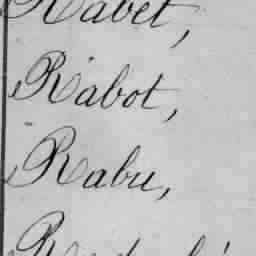 Rabet,
Rabot,
Rabu,